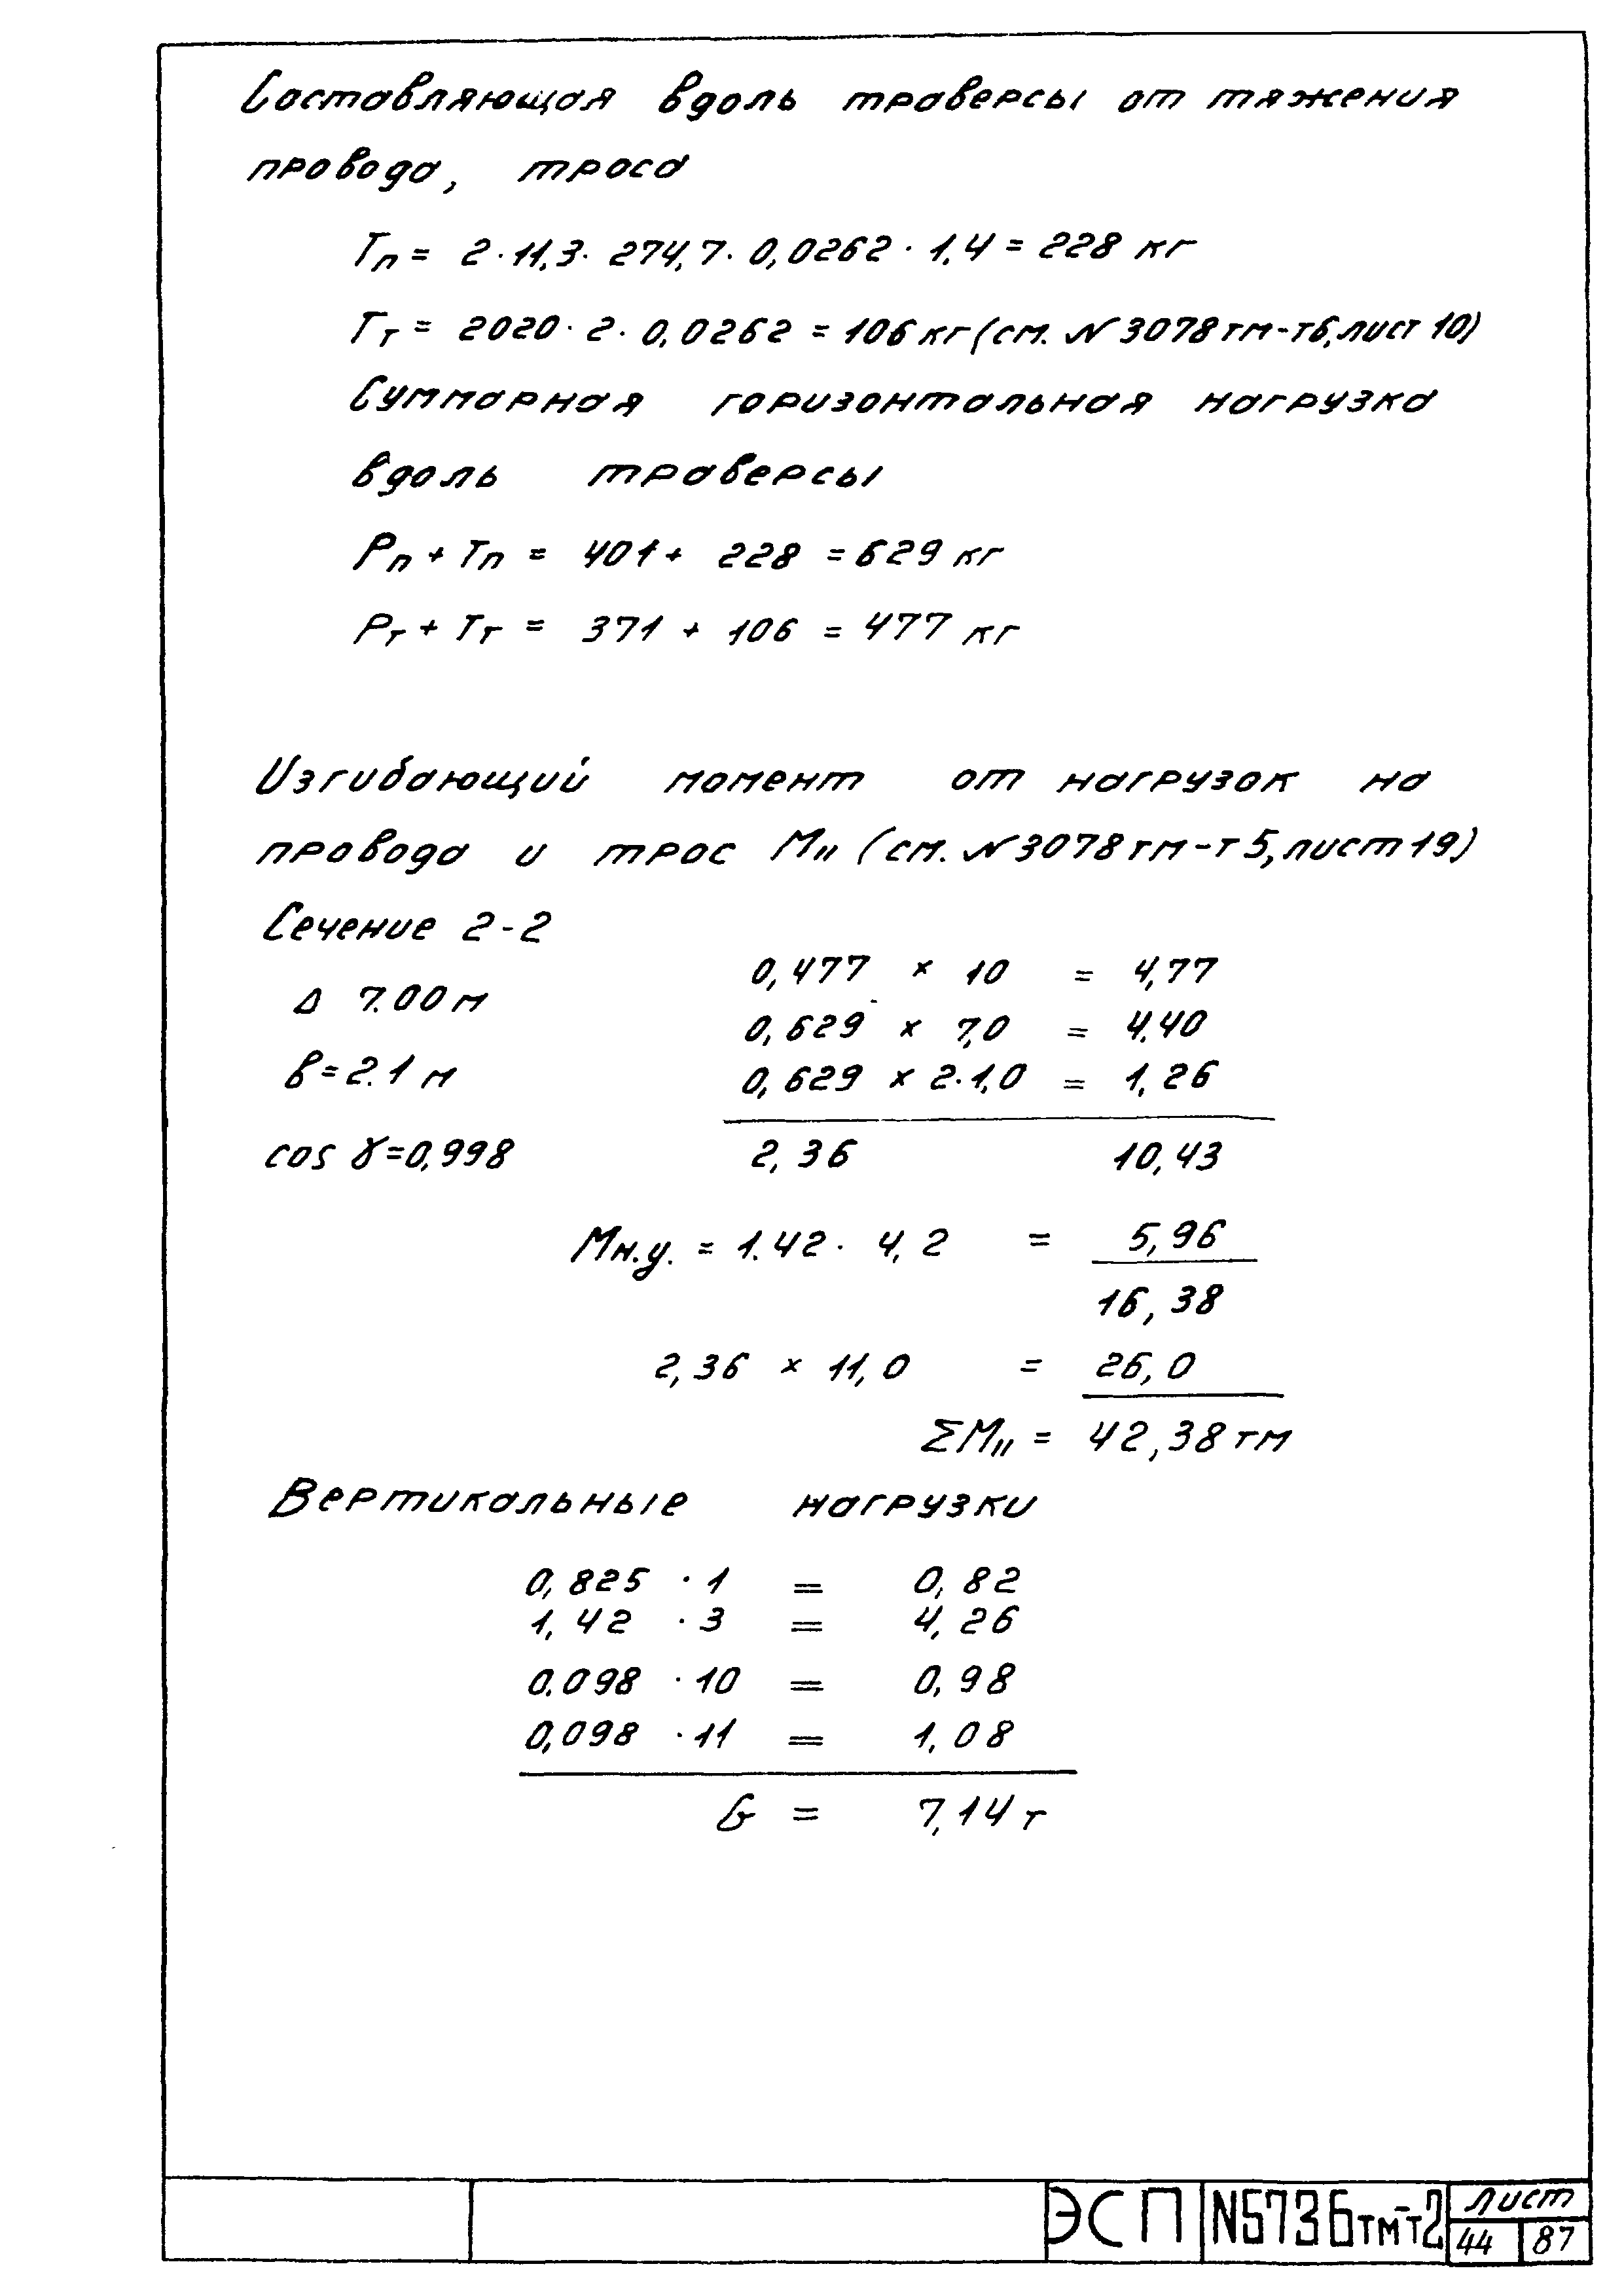 Составляющая вдоль траверсы от тяжения
провода, троса
Тп = 2·11.3·274,7·0,0262·1.4 = 228 кг
Тт = 2020·2·0,0262 = 106 кг (см. №3078тм-т6, лист 10)
Суммарная горизонтальная нагрузка
вдоль траверсы
Рп + Тп = 401 + 228 = 629 кг
Рт + Тт = 371 + 106 = 477 кг
Изгибающий момент от нагрузок на
провода и трос М" (см. №3078тм-т5, лист 19)
Сечение 2-2
0,477 × 10 = 4,77
Δ 7.00 м
0,629 × 7,0 = 4.40
в = 2.1 м
0,629 × 2·1,0 = 1,26
cos γ = 0,998
2,36 10,43
Мн.у. = 1.42 · 4,2 = 5,96
16,38
2,36 × 11,0 = 26,0
ΣМ" = 42,38 тм
Вертикальные нагрузки
0,825 · 1 = 0,82
1,42 · 3 = 4,26
0.098 · 10 = 0,98
0,098 · 11 = 1,08
G = 7,14 т
ЭСП N5736тм-т2 Лист
44 87